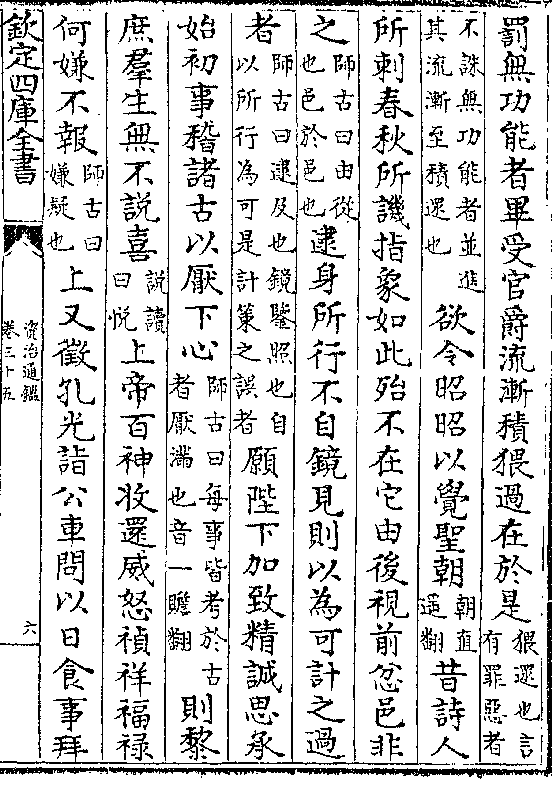 罰無功能者畢受官爵流漸積猥過在於是猥還也言有罪惡者
不誅無功能者並進其流漸至積還也欲令昭昭以覺聖朝朝直遥翻昔詩人
所刺春秋所譏指象如此殆不在它由後視前忿邑非
之師古曰由從也邑於邑也逮身所行不自鏡見則以為可計之過
者師古曰逮及也鏡鑒照也自以所行為可是計策之誤者願陛下加致精誠思承
始初事稽諸古以厭下心師古曰每事皆考於古者厭滿也音一贍翻則黎
庶羣生無不説喜説讀曰悦上帝百神收還威怒禎祥福禄
何嫌不報師古曰嫌疑也上又徵孔光詣公車問以日食事拜
欽定四庫全書
資治通鑑
卷三十五
六